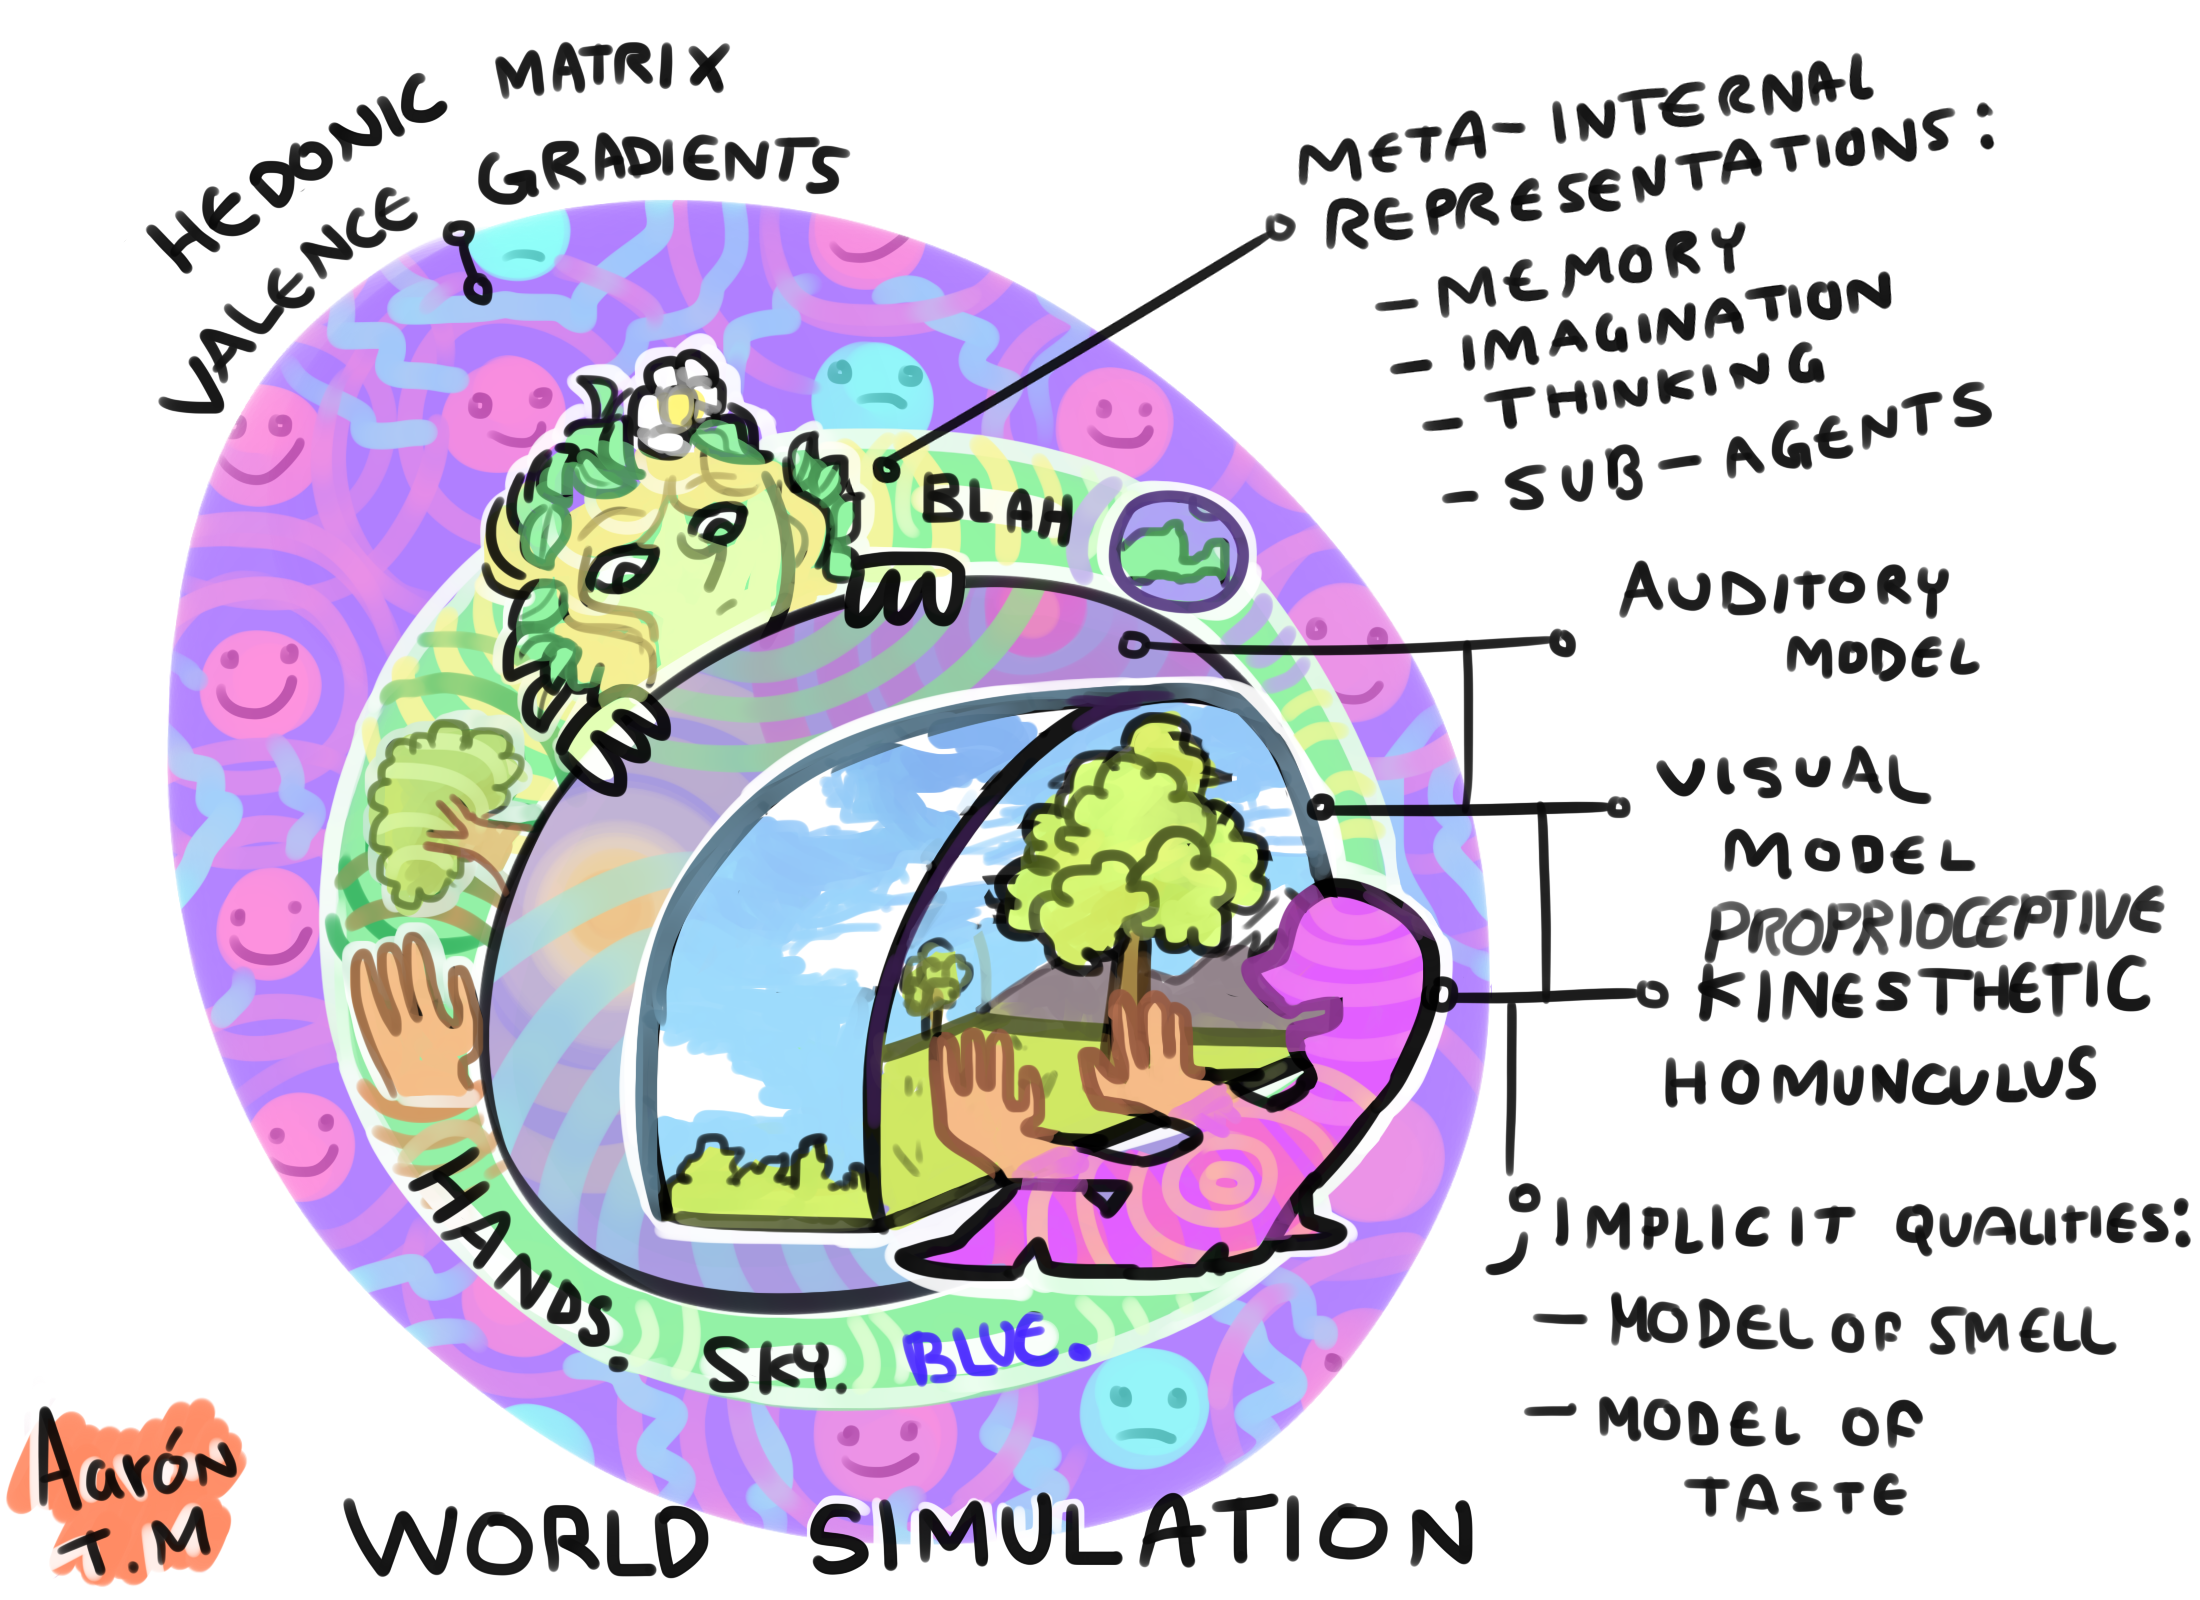 HEDONIC MATRIX
VALENCE GRADIENTS
META-INTERNAL
REPRESENTATIONS:
- MEMORY
- IMAGINATION
- THINKING
- SUB-AGENTS
BLAH
AUDITORY
MODEL
VISUAL
MODEL
PROPRIOCEPTIVE
KINESTHETIC
HOMUNCULUS
IMPLICIT QUALITIES:
- MODEL OF SMELL
- MODEL OF
TASTE
HANDS. SKY. BLUE.
WORLD SIMULATION
Aarón
T.M